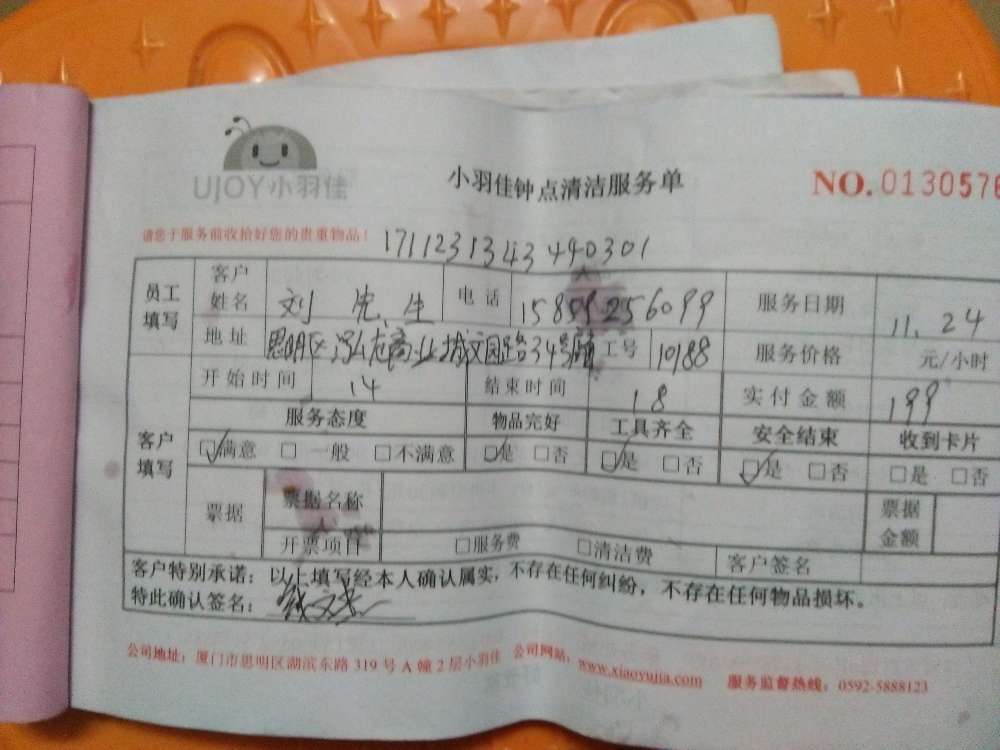 UJOY小羽佳
小羽佳钟点清洁服务单
NO.0130576
请您于服务前收拾好您的贵重物品！
171123134344030​1
员工填写 客户姓名 刘先生 电话 15859256099 服务日期 11.24
地址 思明区泓龙商业城文园路34号 工号 10188 服务价格 元/小时
开始时间 14 结束时间 18 实付金额 199
客户填写 服务态度 物品完好 工具齐全 安全结束 收到卡片
☑满意 □一般 □不满意 ☑是 □否 ☑是 □否 ☑是 □否 □是 □否
票据 票据名称 票据金额
开票项目 □服务费 □清洁费 客户签名
客户特别承诺：以上填写经本人确认属实，不存在任何纠纷，不存在任何物品损坏。
特此确认签名：
公司地址：厦门市思明区湖滨东路319号A幢2层小羽佳 公司网站：www.xiaoyujia.com 服务监督热线：0592-5888123